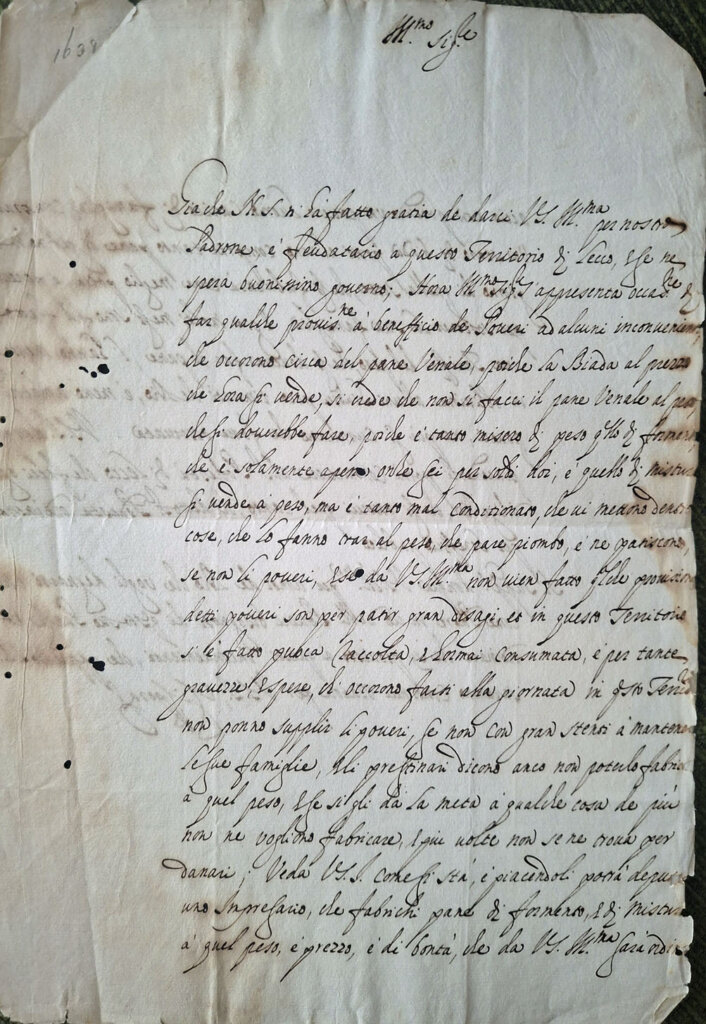 1638
Ill.mo Sig.re
Gia che N. S. n'ha fatto gratia de darci V.S. Ill.ma per nostro
Padrone e feudatario a questo Territorio di Lecco, e se ne
spera buonissimo governo; Hora Ill.mo Sig.re s'appresenta occas.ne di
far qualche provis.ne à benefficio de Poveri ad alcuni inconvenien
che occorono circa del pane Venale, poiche la Biada al prezzo
che hora si vende, si crede che non si facci il pane Venale al peso
che si doverebbe fare, poiche è tanto misero di peso q.llo di forment
che è solamente apena onze sei per soldi doi, e quello di mistura
si vende à peso, ma è tanto mal conditionato, che vi mettono dentro
cose, che lo fanno trar al peso, che pare piombo, e ne patiscono
se non li poveri, E se da V.S. Ill.ma non vien fatto q.lche provision
detti poveri son per patir gran disagi, et in questo Territorio
si è fatto puoca Raccolta, e hormai consumata, e per tante
gravezze e spese, che occorono farsi alla giornata in q.sto Terr.rio
non ponno supplir li poveri, se non con gran stenti à mantene
le sue famiglie, e li prestinari dicono anco non poterlo fabric
à quel peso, e se si gli dà la meta à qualche cosa de più
non ne vogliono fabricare, e più volte non se ne trova per
danari; Veda V.S.I. come si stà, e piacendoli potrà deputa
uno Impresario, che fabrichi pane di formento, e di Mistura
à quel peso, e prezzo, e di bontà, che da V.S. Ill.ma sarà ordi